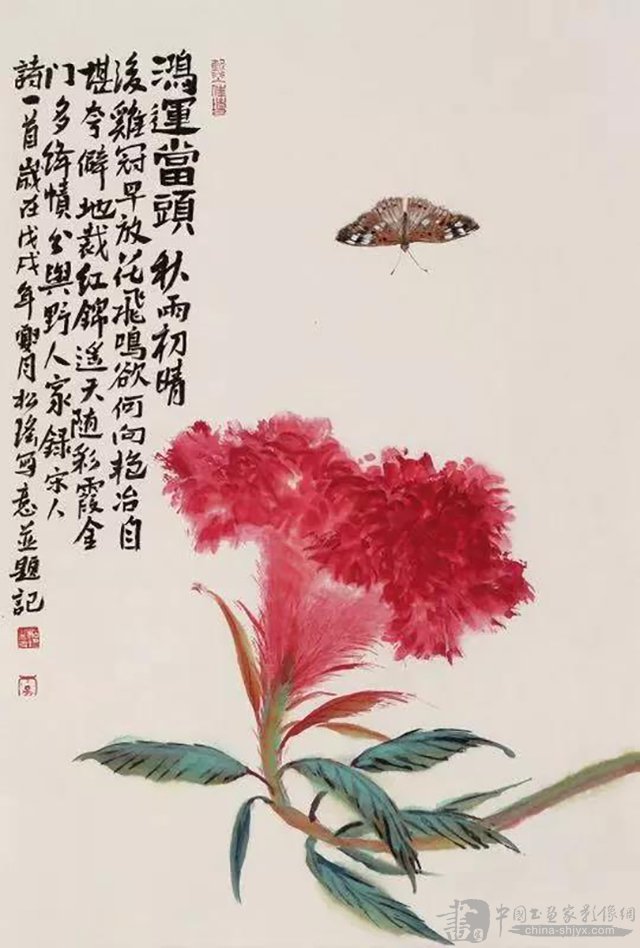 鴻運當頭 秋雨初晴
後雞冠早放花飛鳴欲何向艳冶自
堪夸僻地裁红錦遥天随彩霞金
门多绛幘分與野人家録宋人
詩一首歲在戊戌年月松瑤写意並題記
書 中国书画家影像網
china-shjyx.com